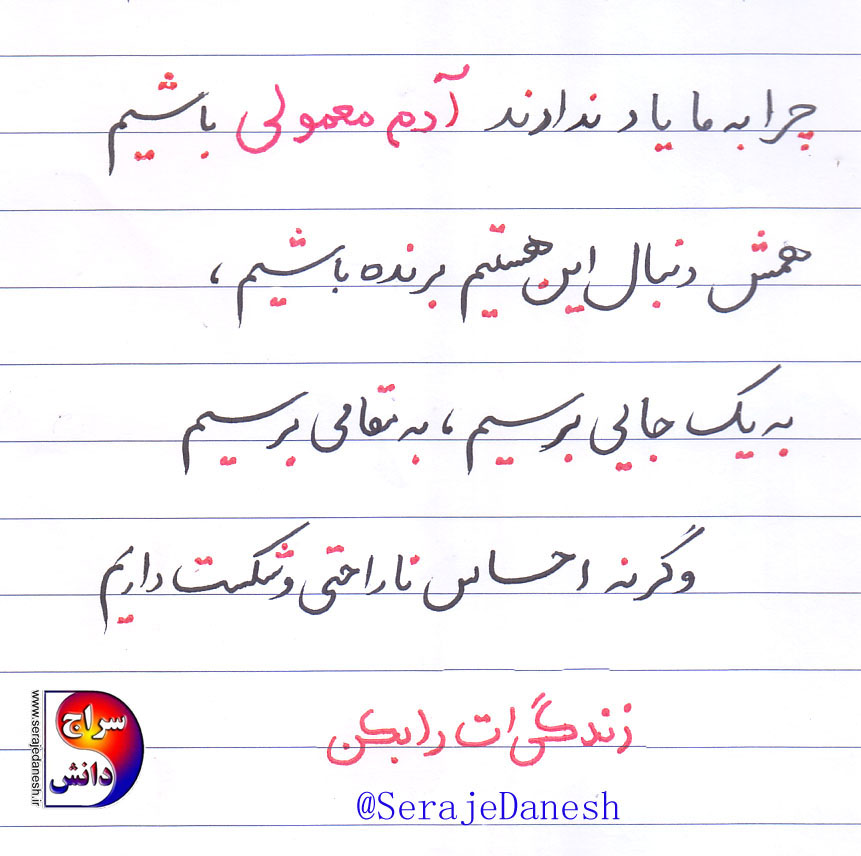 چرا به ما یاد ندادند آدم معمولی باشیم
همش دنبال این هستیم برنده باشیم ،
به یک جایی برسیم ، به مقامی برسیم
وگرنه احساس ناراحتی و شکست داریم
زندگی ات را بکن
@SerajeDanesh
سراج
دانش
www.serajedanesh.ir